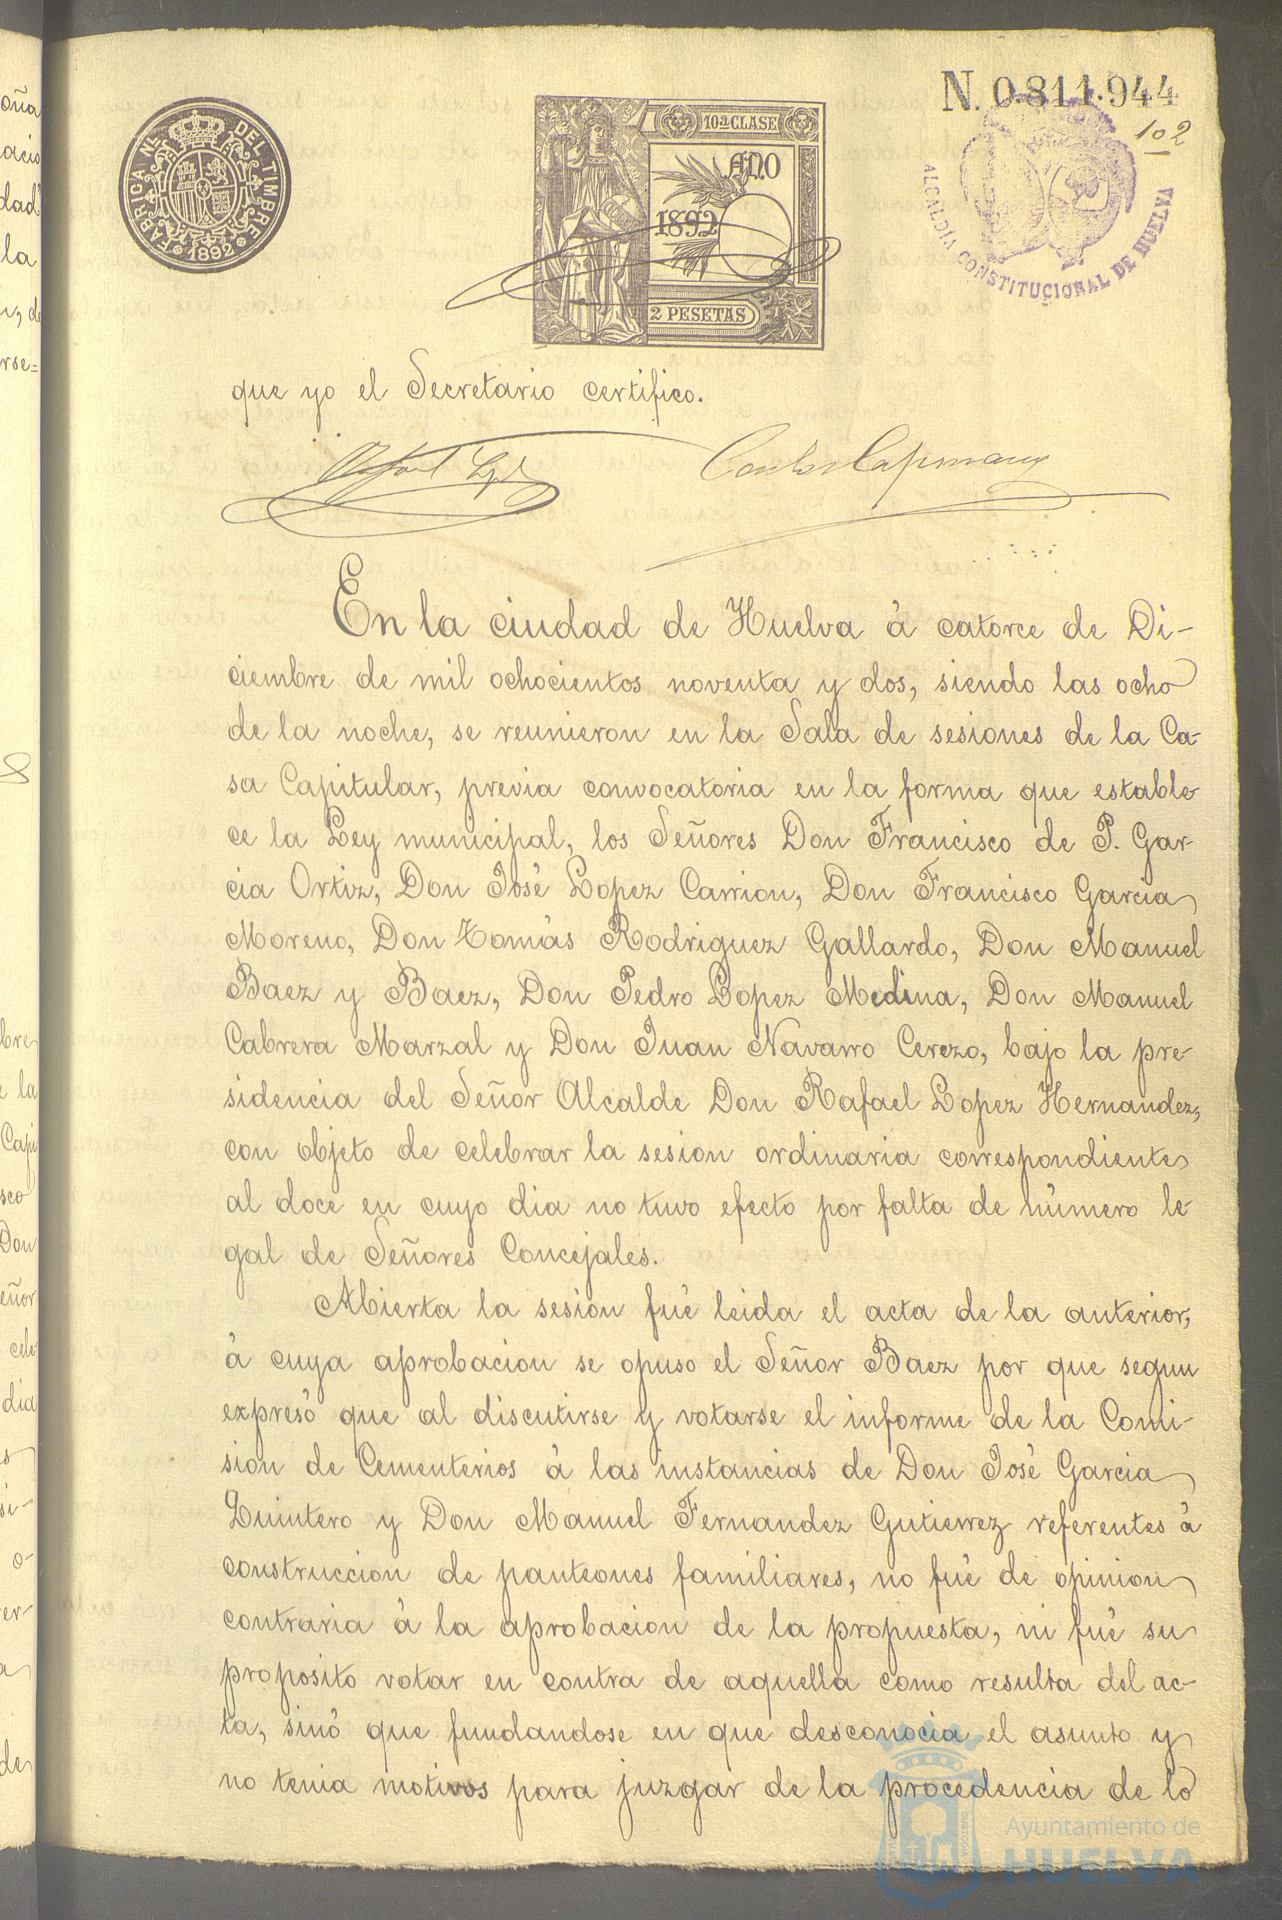 N. 0.811.944
102
FABRICA NL. DEL TIMBRE
1892
10ª CLASE
AÑO
1892
2 PESETAS
ALCALDIA CONSTITUCIONAL DE HUELVA
que yo el Secretario certifico.
Rafael Lopez
Carlos Capmany
En la ciudad de Huelva à catorce de Di-
ciembre de mil ochocientos noventa y dos, siendo las ocho
de la noche, se reunieron en la Sala de sesiones de la Ca-
sa Capitular, previa convocatoria en la forma que estable-
ce la Ley municipal, los Señores Don Francisco de P. Gar-
cia Ortiz, Don José Lopez Carrion, Don Francisco Garcia
Moreno, Don Tomás Rodriguez Gallardo, Don Manuel
Baez y Baez, Don Pedro Lopez Medina, Don Manuel
Cabrera Marzal y Don Juan Navarro Cerezo, bajo la pre-
sidencia del Señor Alcalde Don Rafael Lopez Hernandez,
con objeto de celebrar la sesion ordinaria correspondiente
al doce en cuyo dia no tuvo efecto por falta de número le-
gal de Señores Concejales.
Abierta la sesion fué leida el acta de la anterior,
à cuya aprobacion se opuso el Señor Baez por que segun
expresó que al discutirse y votarse el informe de la Comi-
sion de Cementerios à las instancias de Don José Garcia
Quintero y Don Manuel Fernandez Gutierrez referentes à
construccion de panteones familiares, no fué de opinion
contraria à la aprobacion de la propuesta, ni fué su
proposito votar en contra de aquella como resulta del ac-
ta, sinó que fundandose en que desconocia el asunto y
no tenia motivos para juzgar de la procedencia de lo
Ayuntamiento de
HUELVA